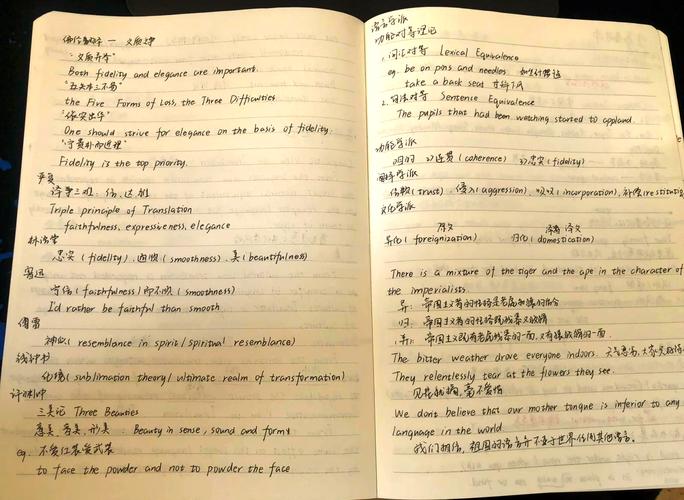 佛经翻译 — 文质之争
"文质齐本"
Both fidelity and elegance are important.
"五失本三不易"
the Five Forms of Loss, the Three Difficulties
"依实出华"
One should strive for elegance on the basis of fidelity.
Fidelity is the top priority.
严复
译事三难：信、达、雅
Triple principle of Translation
faithfulness, expressiveness, elegance
林语堂
忠实 (fidelity)、通顺 (smoothness)、美 (beautifulness)
鲁迅
宁信 (faithfulness) 而不顺 (smoothness)
I'd rather be faithful than smooth
傅雷
神似 (resemblance in spirit / spiritual resemblance)
钱钟书
化境 (sublimation theory / ultimate realm of transformation)
许渊冲
三美论 Three Beauties
意美、音美、形美 : Beauty in sense, sound and form
eg. 不爱红装爱武装
to face the powder and not to powder the face
语言学派
功能对等理论
1. 词汇对等 Lexical Equivalence
eg. be on pins and needles 如坐针毡
take a back seat 甘拜下风
2. 句法对等 Sentence Equivalence
The pupils that had been watching started to applaud.
功能学派
目的 连贯 (coherence) 忠实 (fidelity)
阐释学派
信赖 (trust)、侵入 (aggression)、吸收 (incorporation)、补偿 (restitution)
文化学派
原文 译文
异化 (foreignization) 归化 (domestication)
There is a mixture of the tiger and the ape in the character of
the imperialists.
异：帝国主义者的性格是老虎和猿的混合
归：帝国主义者的性格既残暴又狡猾
The bitter weather drove everyone indoors.
They relentlessly tear at the flowers they see.
见花就摘，毫不爱惜
We dont believe that our mother tongue is inferior to any
language in the world
我们相信，祖国的语言并不亚于世界任何其他语言。